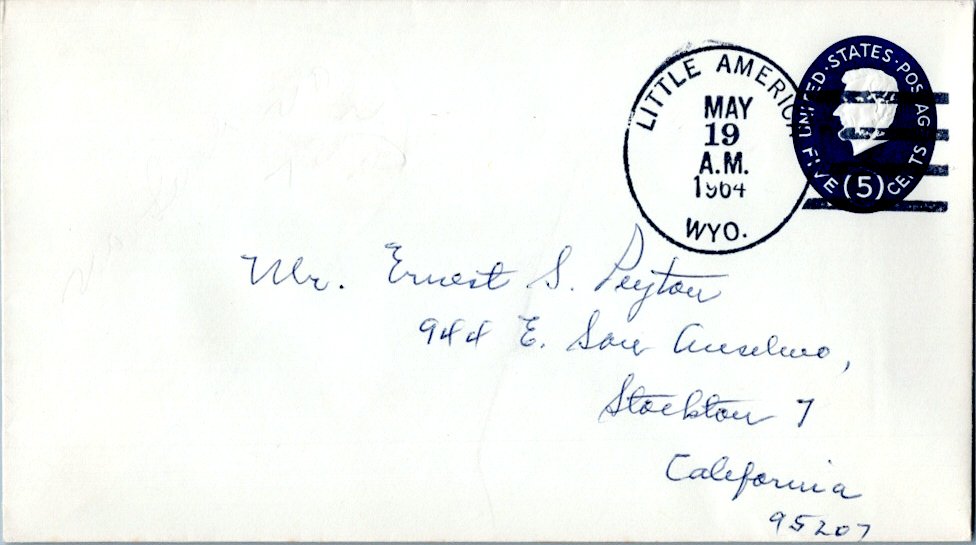 LITTLE AMERICA
MAY
19
A.M.
1964
WYO.
UNITED·STATES·POSTAGE
FIVE (5) CENTS
Mr. Ernest S. Peyton
944 E. San Anselmo,
Stockton 7
California
95207